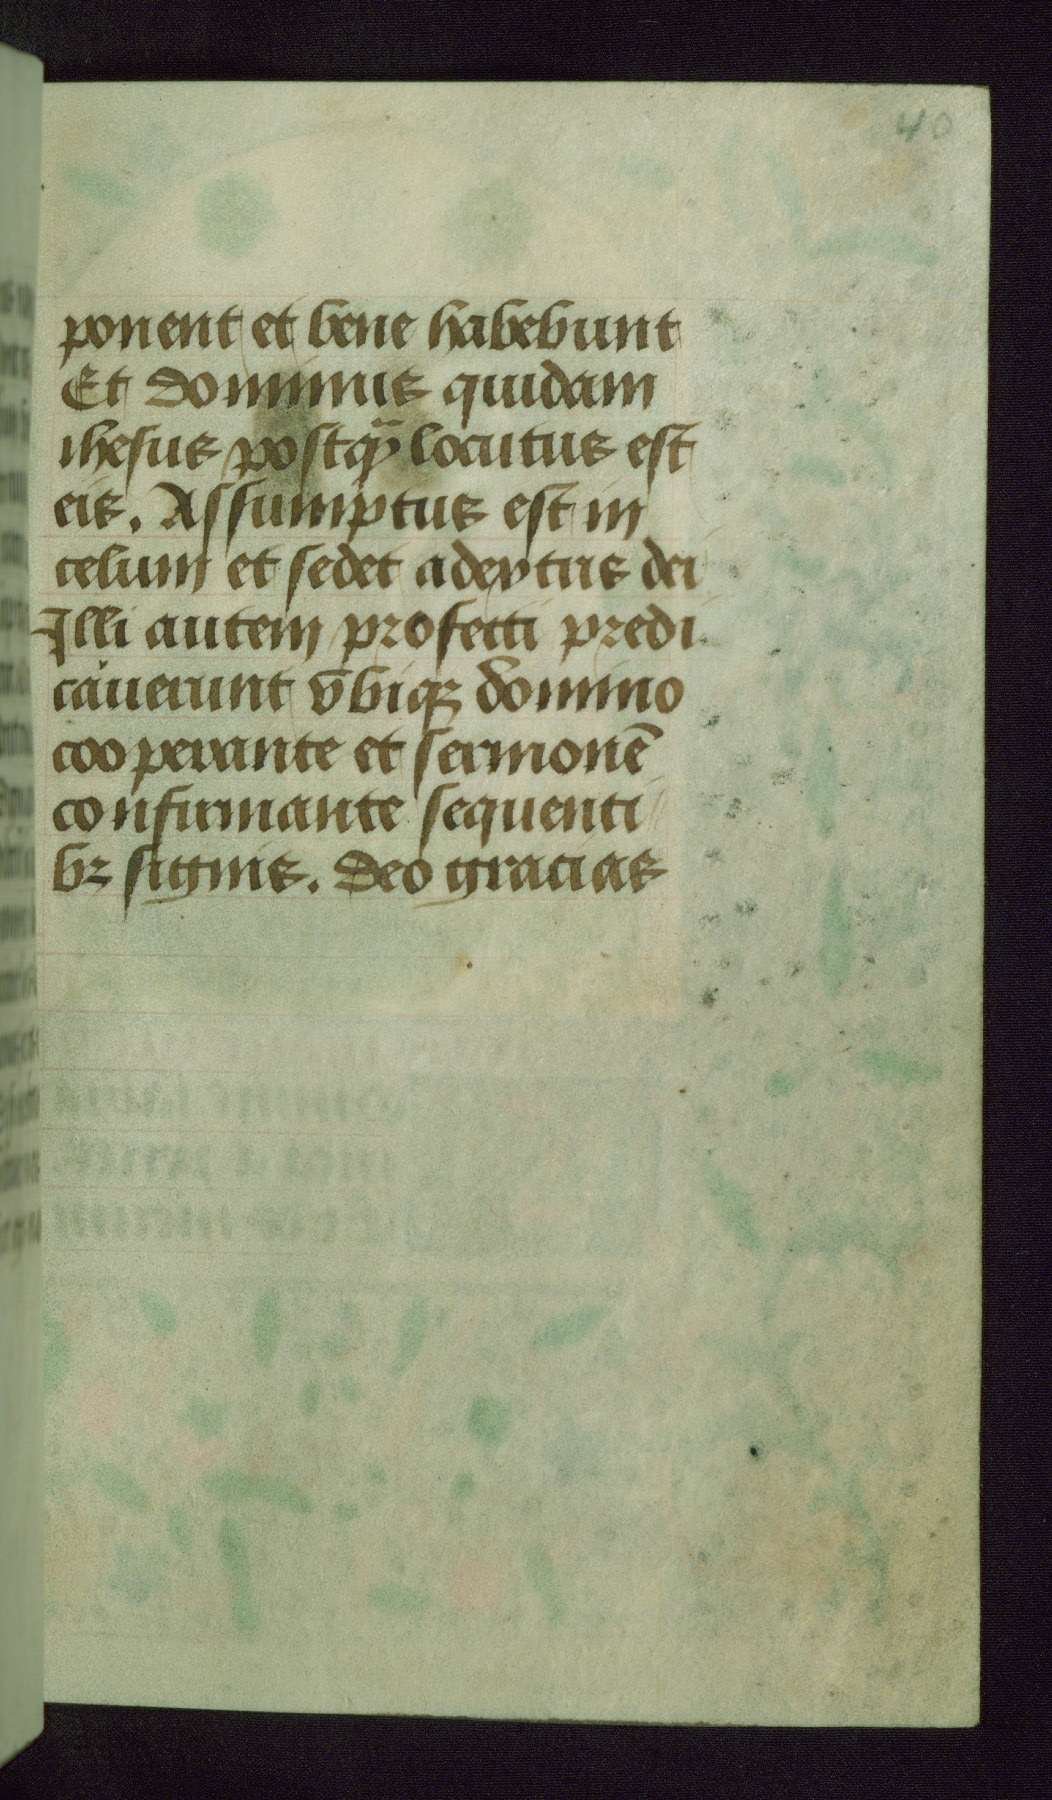 40
ponent et bene habebunt
Et dominus quidam
ihesus postqȝ̄ locutus est
eis. Assumptus est in
celum et sedet a dextris dei
Illi autem profecti predi
cauerunt v̄biqȝ domino
cooperante et sermonē
confirmante sequenti
bȝ signis. Deo gracias